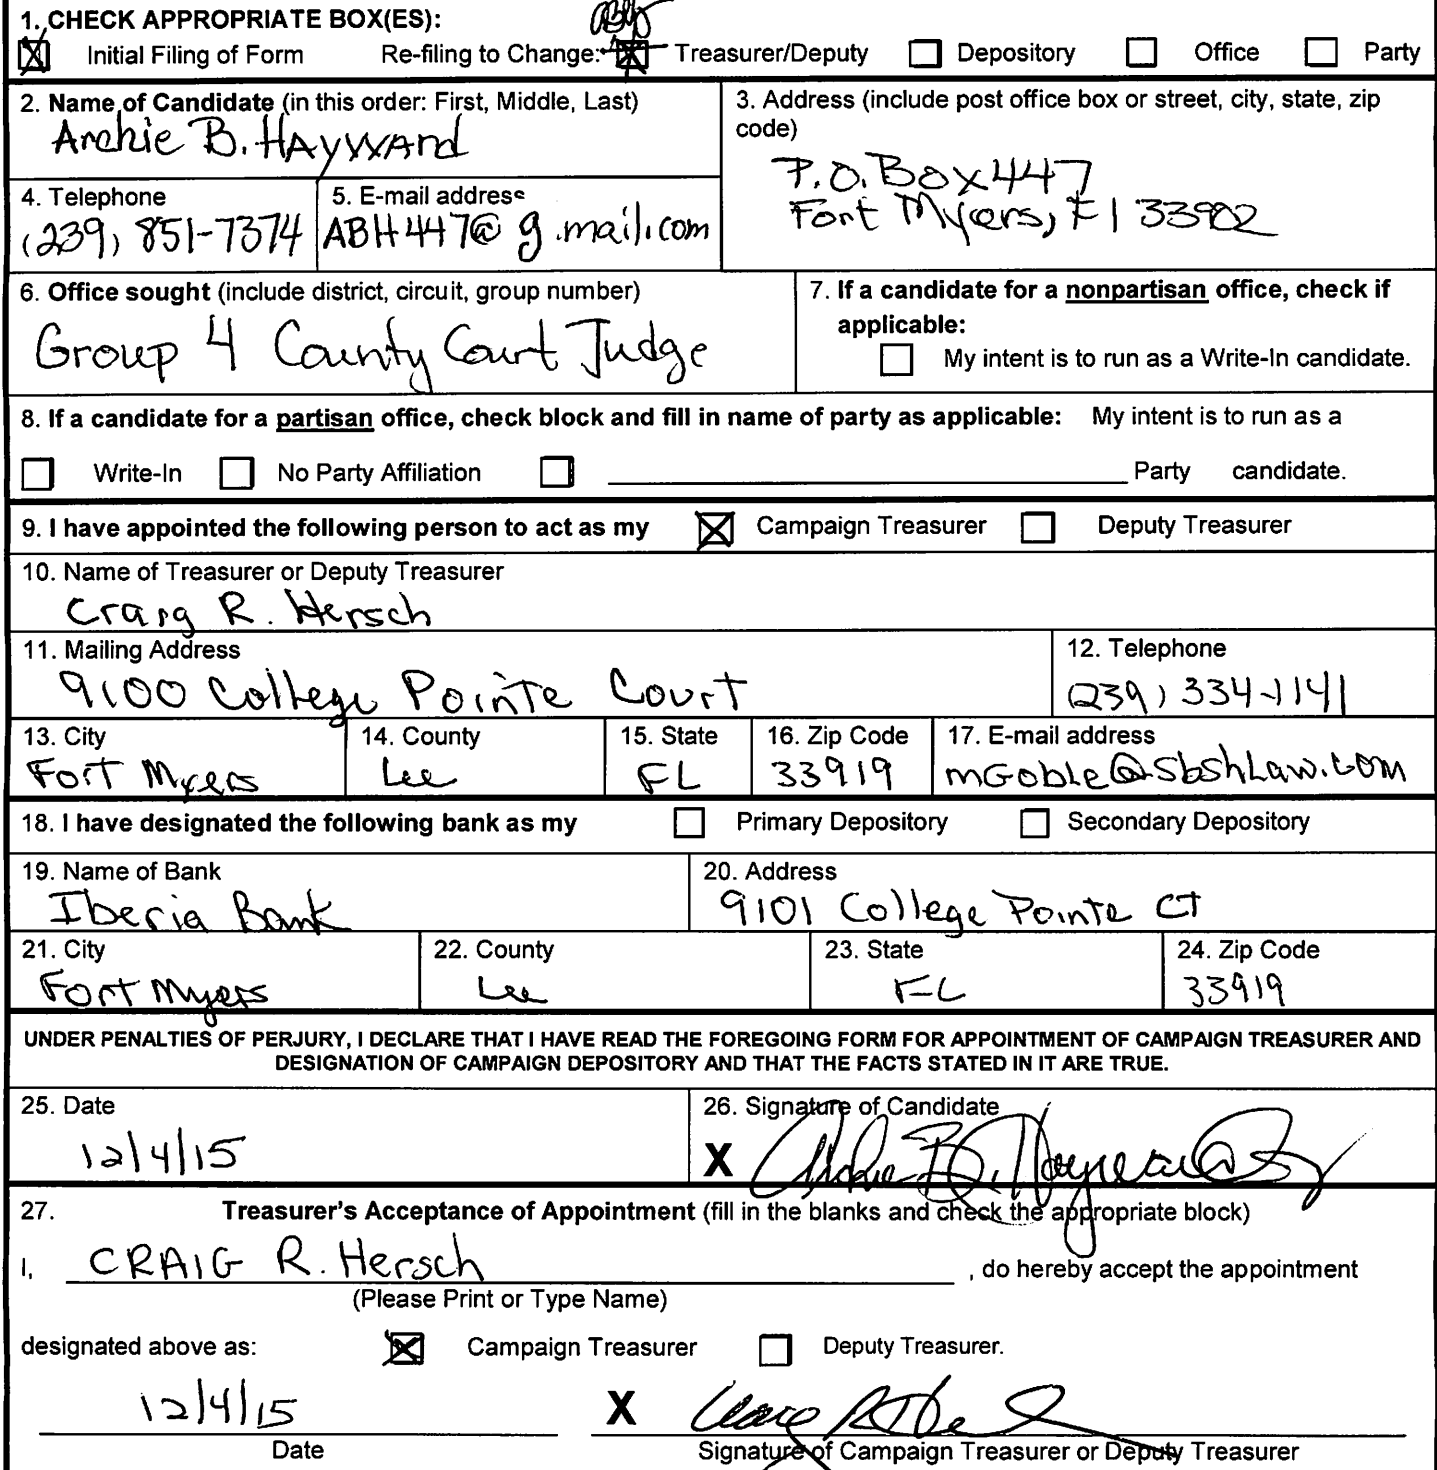 1. CHECK APPROPRIATE BOX(ES):
Initial Filing of Form Re-filing to Change: Treasurer/Deputy Depository Office Party
2. Name of Candidate (in this order: First, Middle, Last)
Archie B. HAYWARd
3. Address (include post office box or street, city, state, zip
code)
P.O. Box 447
Fort Myers, Fl 33902
4. Telephone
(239) 851-7374
5. E-mail address
ABH447@g.mail.com
6. Office sought (include district, circuit, group number)
Group 4 County Court Judge
7. If a candidate for a nonpartisan office, check if
applicable:
My intent is to run as a Write-In candidate.
8. If a candidate for a partisan office, check block and fill in name of party as applicable: My intent is to run as a
Write-In No Party Affiliation Party candidate.
9. I have appointed the following person to act as my Campaign Treasurer Deputy Treasurer
10. Name of Treasurer or Deputy Treasurer
Craig R. Hersch
11. Mailing Address
9100 College Pointe Court
12. Telephone
(239) 334-1141
13. City
Fort Myers
14. County
Lee
15. State
FL
16. Zip Code
33919
17. E-mail address
mGoble@SbshLaw.com
18. I have designated the following bank as my Primary Depository Secondary Depository
19. Name of Bank
Iberia Bank
20. Address
9101 College Pointe CT
21. City
Fort Myers
22. County
Lee
23. State
FL
24. Zip Code
33919
UNDER PENALTIES OF PERJURY, I DECLARE THAT I HAVE READ THE FOREGOING FORM FOR APPOINTMENT OF CAMPAIGN TREASURER AND
DESIGNATION OF CAMPAIGN DEPOSITORY AND THAT THE FACTS STATED IN IT ARE TRUE.
25. Date
12/4/15
26. Signature of Candidate
X Archie B. Hayward
27. Treasurer's Acceptance of Appointment (fill in the blanks and check the appropriate block)
I, CRAIG R. Hersch , do hereby accept the appointment
(Please Print or Type Name)
designated above as: Campaign Treasurer Deputy Treasurer.
12/4/15 X
Date Signature of Campaign Treasurer or Deputy Treasurer